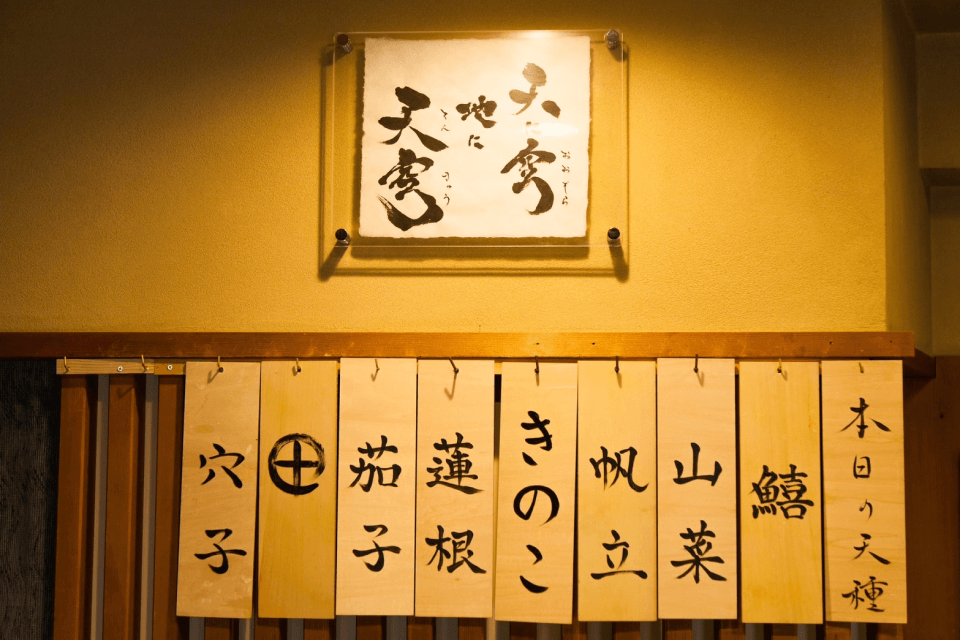 天に穹
おおぞら
地に
天穹
てんきゅう
本日の天種
鱚
山菜
帆立
きのこ
蓮根
茄子
⊕
穴子